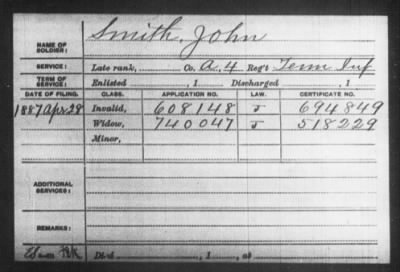 NAME OF SOLDIER: Smith, John
SERVICE: Late rank, Co. A, 4 Reg't Tenn Inf
TERM OF SERVICE: Enlisted , 1 Discharged , 1
DATE OF FILING. CLASS. APPLICATION NO. LAW. CERTIFICATE NO.
1887 Apr 28 Invalid, 608148 J 694849
Widow, 740047 J 518229
Minor,
ADDITIONAL SERVICES:
REMARKS:
Died , 1 , at